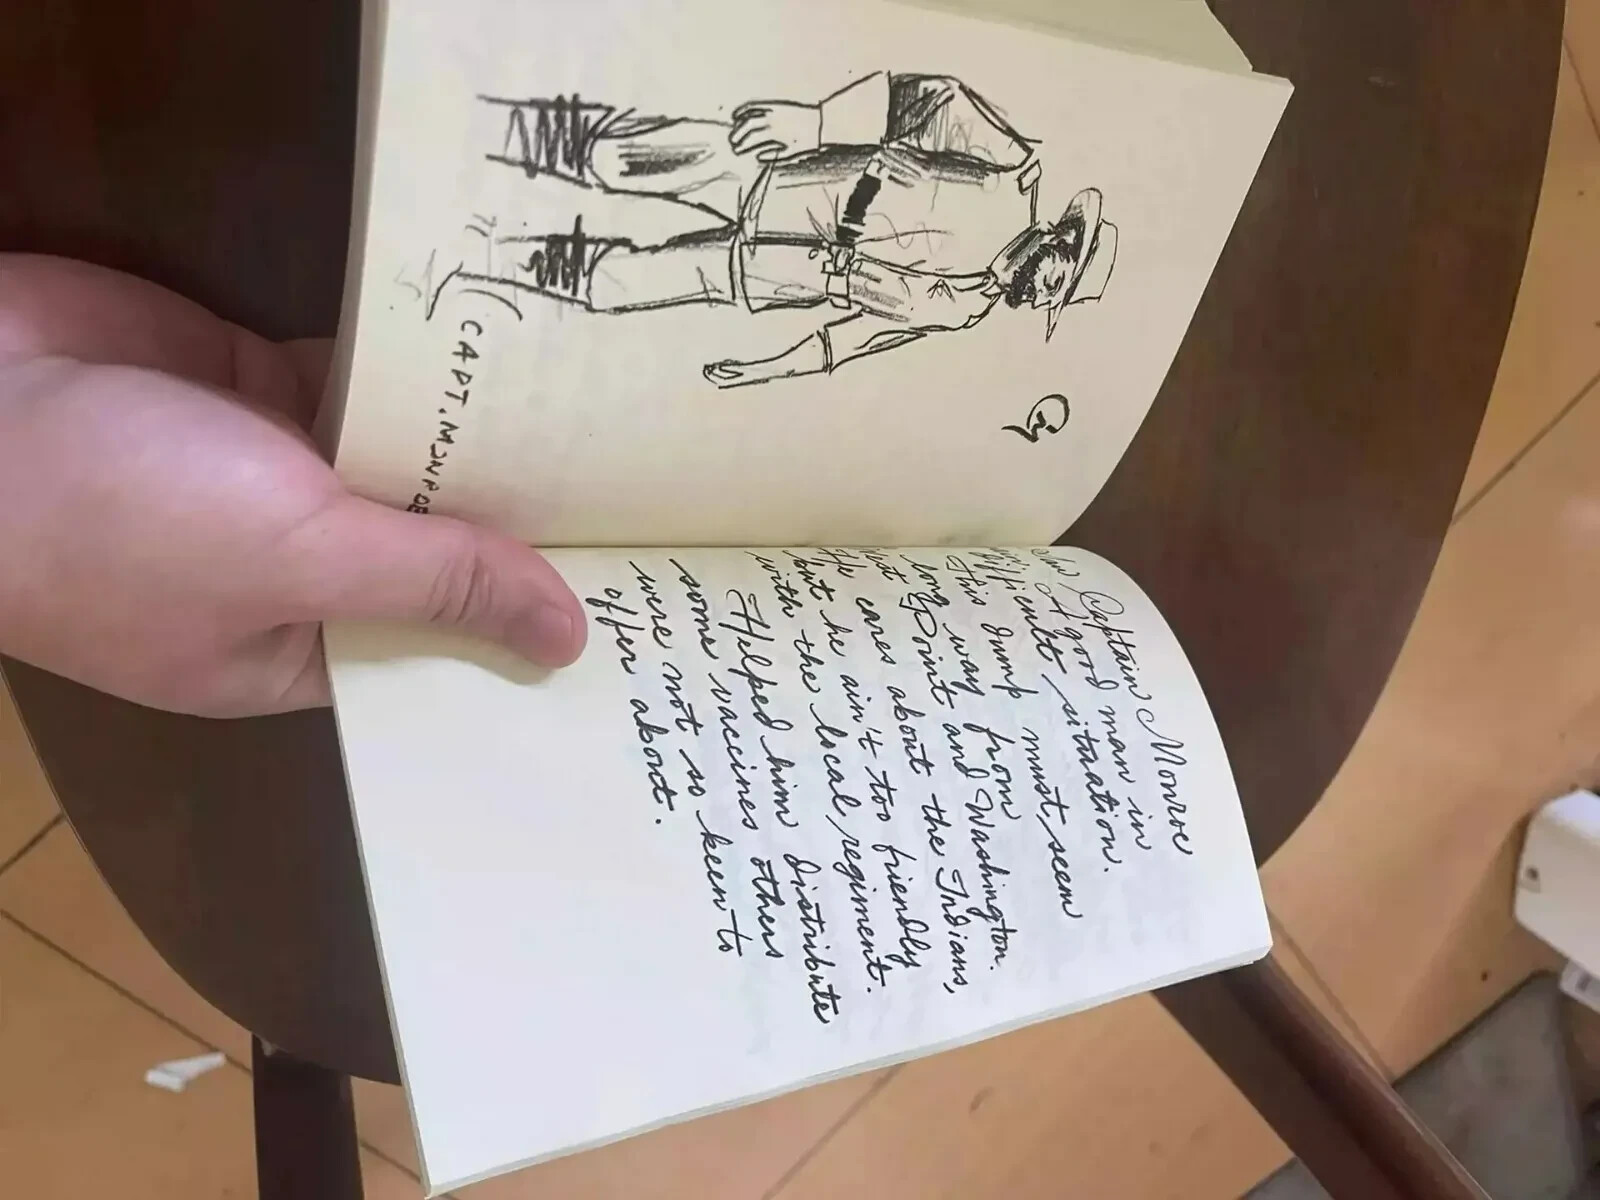 CAPT. MONROE
Captain Monroe
A good man in
difficult situation.
This dump must, seem
long way from
West Point and Washington.
He cares about the Indians,
but he ain't too friendly
with the local, regiment.
Helped him distribute
some vaccines others
were not so keen to
offer about.